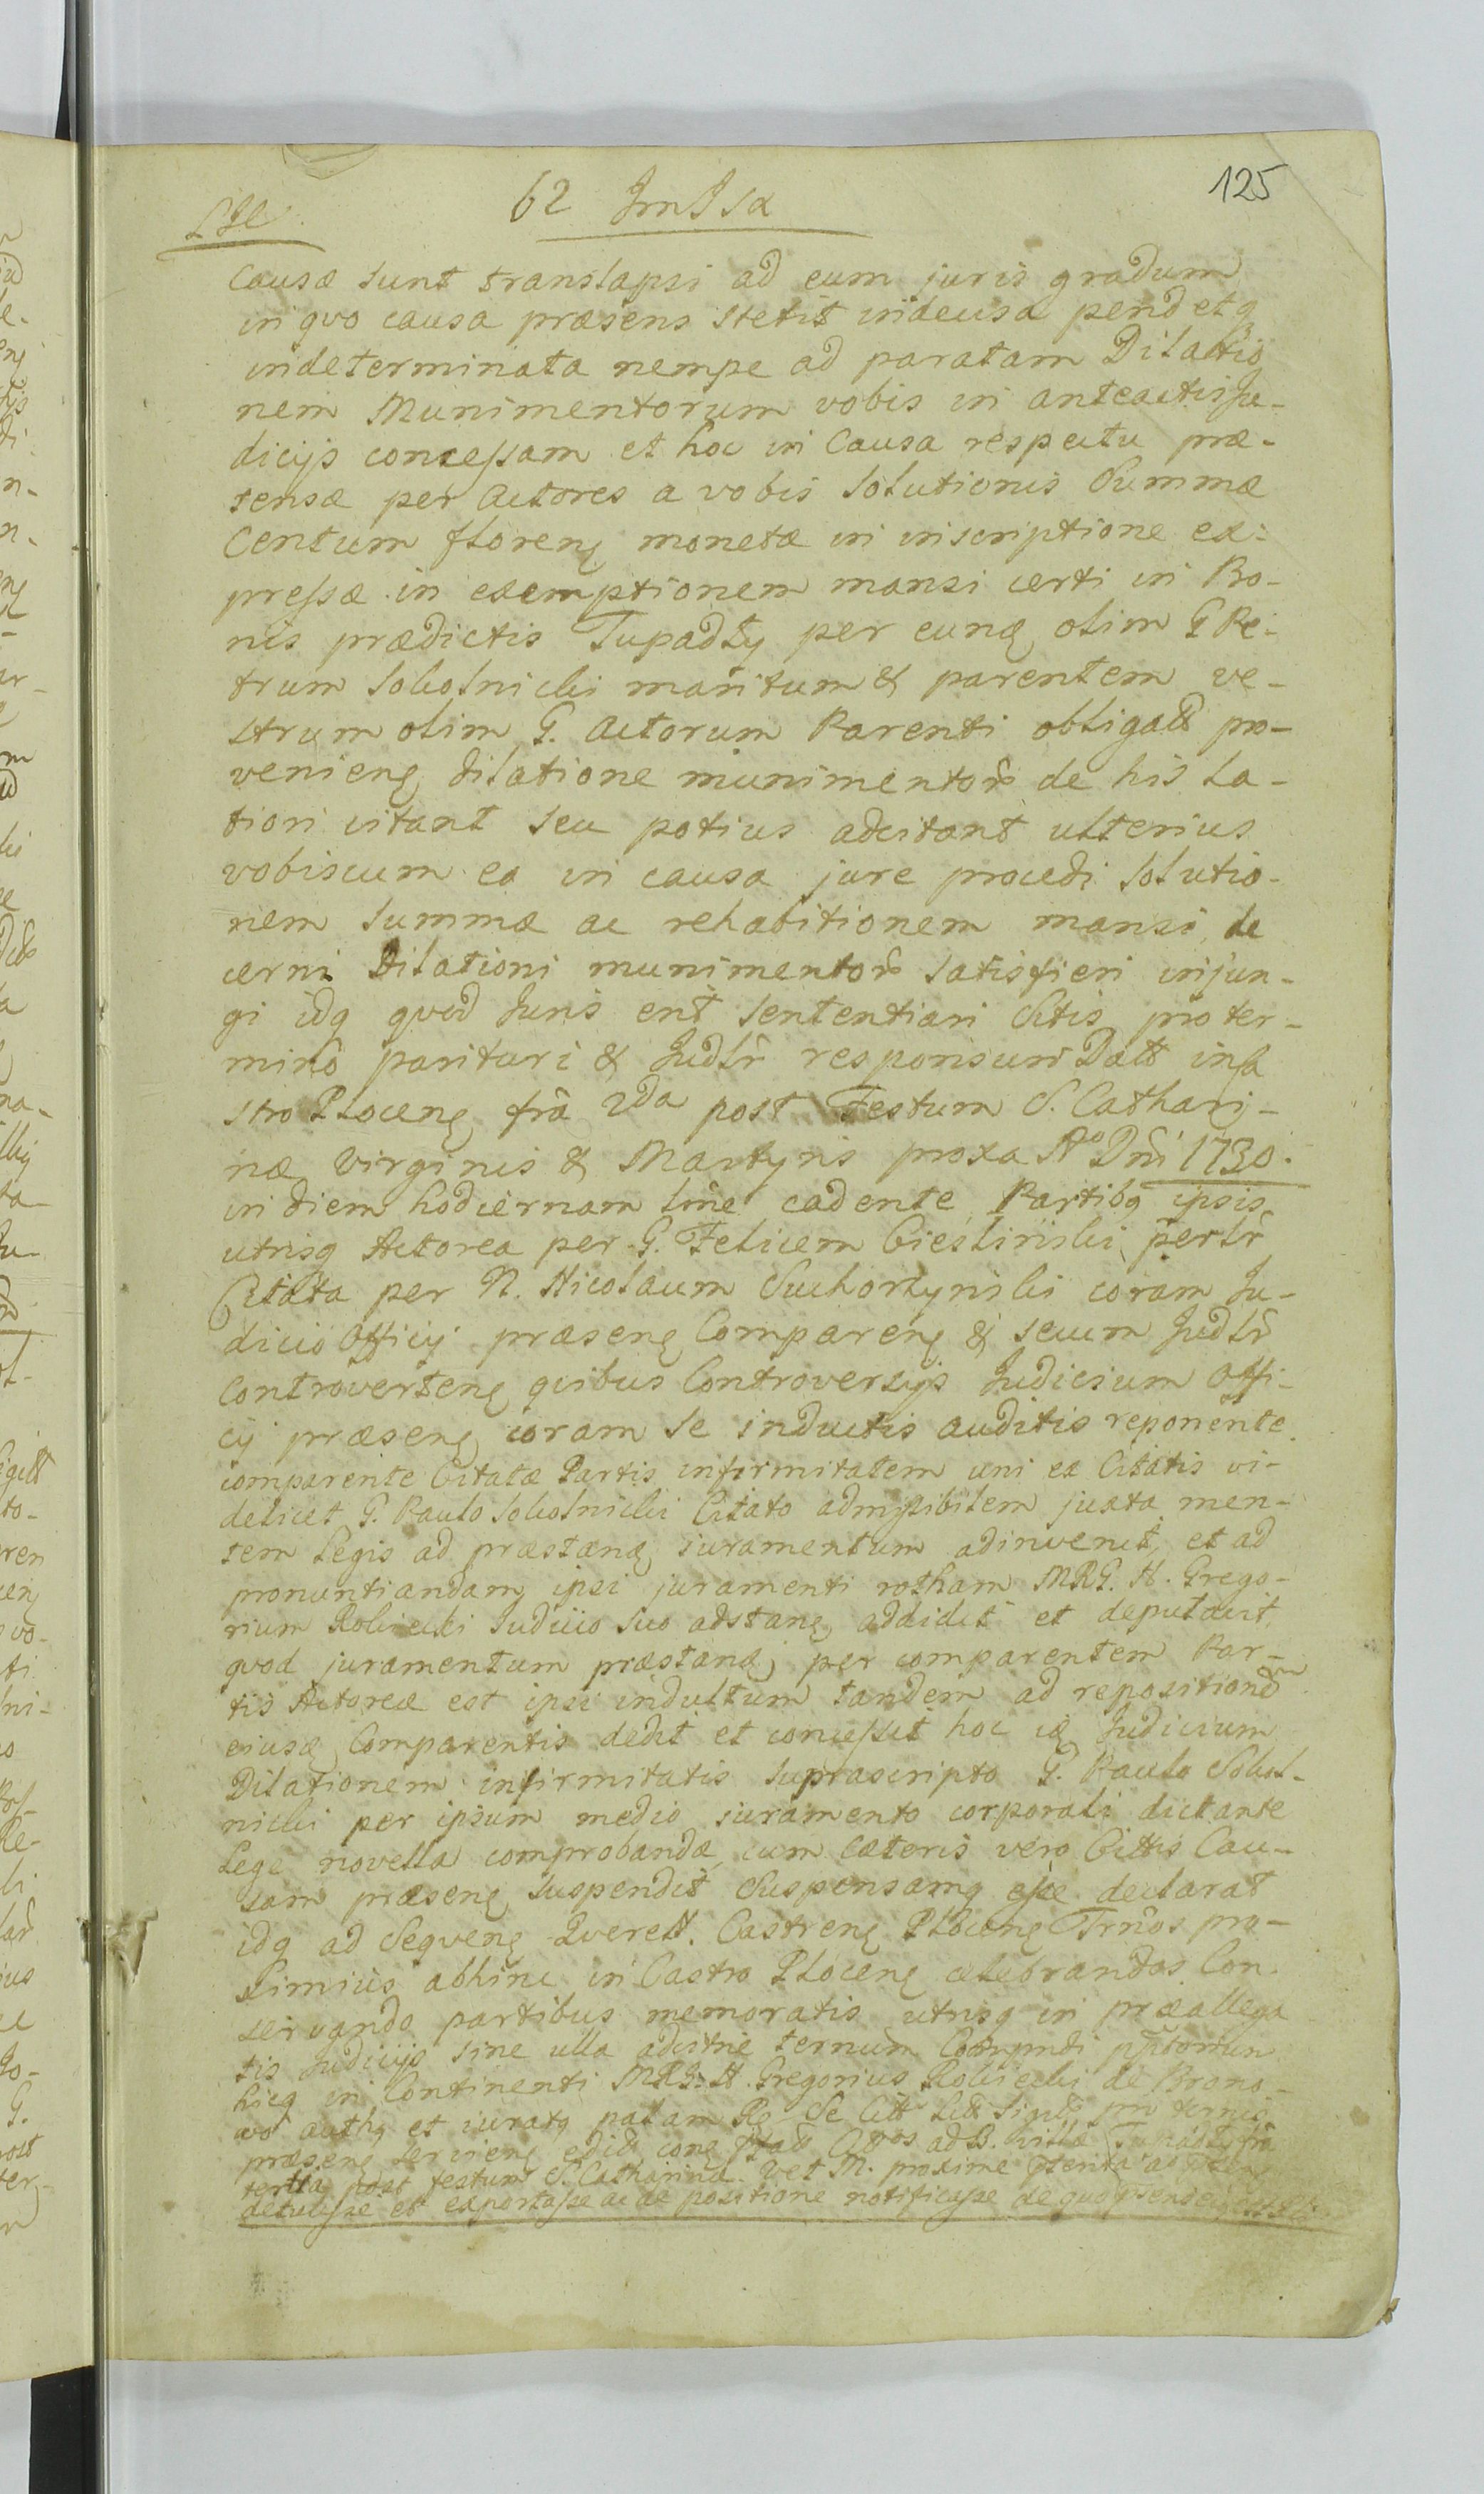 125
62
causæ sunt translapsi ad eum juris gradum
in qvo causa præsens stetit indecisa pendetq
indeterminata nempe ad paratam Dilatio
nem Munimentorum vobis in anteactis Ju-
dicijs concessam et hoc in Causa respectu præ-
tensæ per Actores a vobis solutionis Summæ
Centum floren monetæ in inscriptione ex-
pressæ in exemptionem mansi certi in Bo-
nis prædictis Tupadly per eund olim G Pe-
trum Sokolnicki maritum & parentem ve-
strum olim G. Actorum Parenti obligatt pro-
venien dilatione munimentor de his la-
tiori citant seu potius adcitant ulterius
vobiscum ea in causa jure procedi solutio-
nem summæ ac rehabitionem mansi de
cerni Dilationi munimentor satisfieri injun-
gi idq qvod Juris erit sententiari Sitis pro ter-
mino parituri & Judlr responsuri Datt in Ca
stro Plocen fra 2da post Festum S. Cathari-
næ Virginis & Martyris proxa Ao Dni 1730.
in diem hodiernam cadente Partibq ipsis
utrisq Actorea per G. Felicem Cieslinski perlr
Citata per N. Nicolaum Suchorzynski coram Ju-
dicio Officij præsen Comparen & secum Judlr
Controverten qvibus Controversijs Judicium Offi-
cij præsen coram se inductis auditis reponente
comparente Citatæ Partis infirmitatem uni ex Citatis vi-
delicet G. Paulo Sokolnicki Citato admissibilem juxta men-
tem Legis ad præstand juramentum adinvenit, et ad
pronuntiandam ipsi juramenti rotham MRG. H. Grego-
rium Robiecki Judicio suo adstan addidit et deputavit
qvod juramentum præstand per comparentem Par-
tis Actoreæ est ipsi indultum tandem ad repositionem
eiusd Comparentis dedit et concessit hoc id Judicium
Dilationem infirmitatis suprascripto G. Paulo Sokol-
nicki per ipsum medio juramento corporali dictante
Lege novella comprobandæ cum cæteris vero Cittis Cau-
sam præsen suspendit Suspensamq esse declarat
idq ad Seqven Qverell. Castren Plocen Trnos pro-
ximius abhinc in Castro Plocen celebrandos Con-
servando partibus memoratis utrisq in præallega
tis Judicijs sine ulla adcitne ternum
hicq in Continenti MRG. H. Gregorius Robiecki de Brono-
wo auth et jurat palam Se
præsen servien
tertia post festum S. Catharinæ proxime
detulisse et exportasse ac de positione notificasse de quo